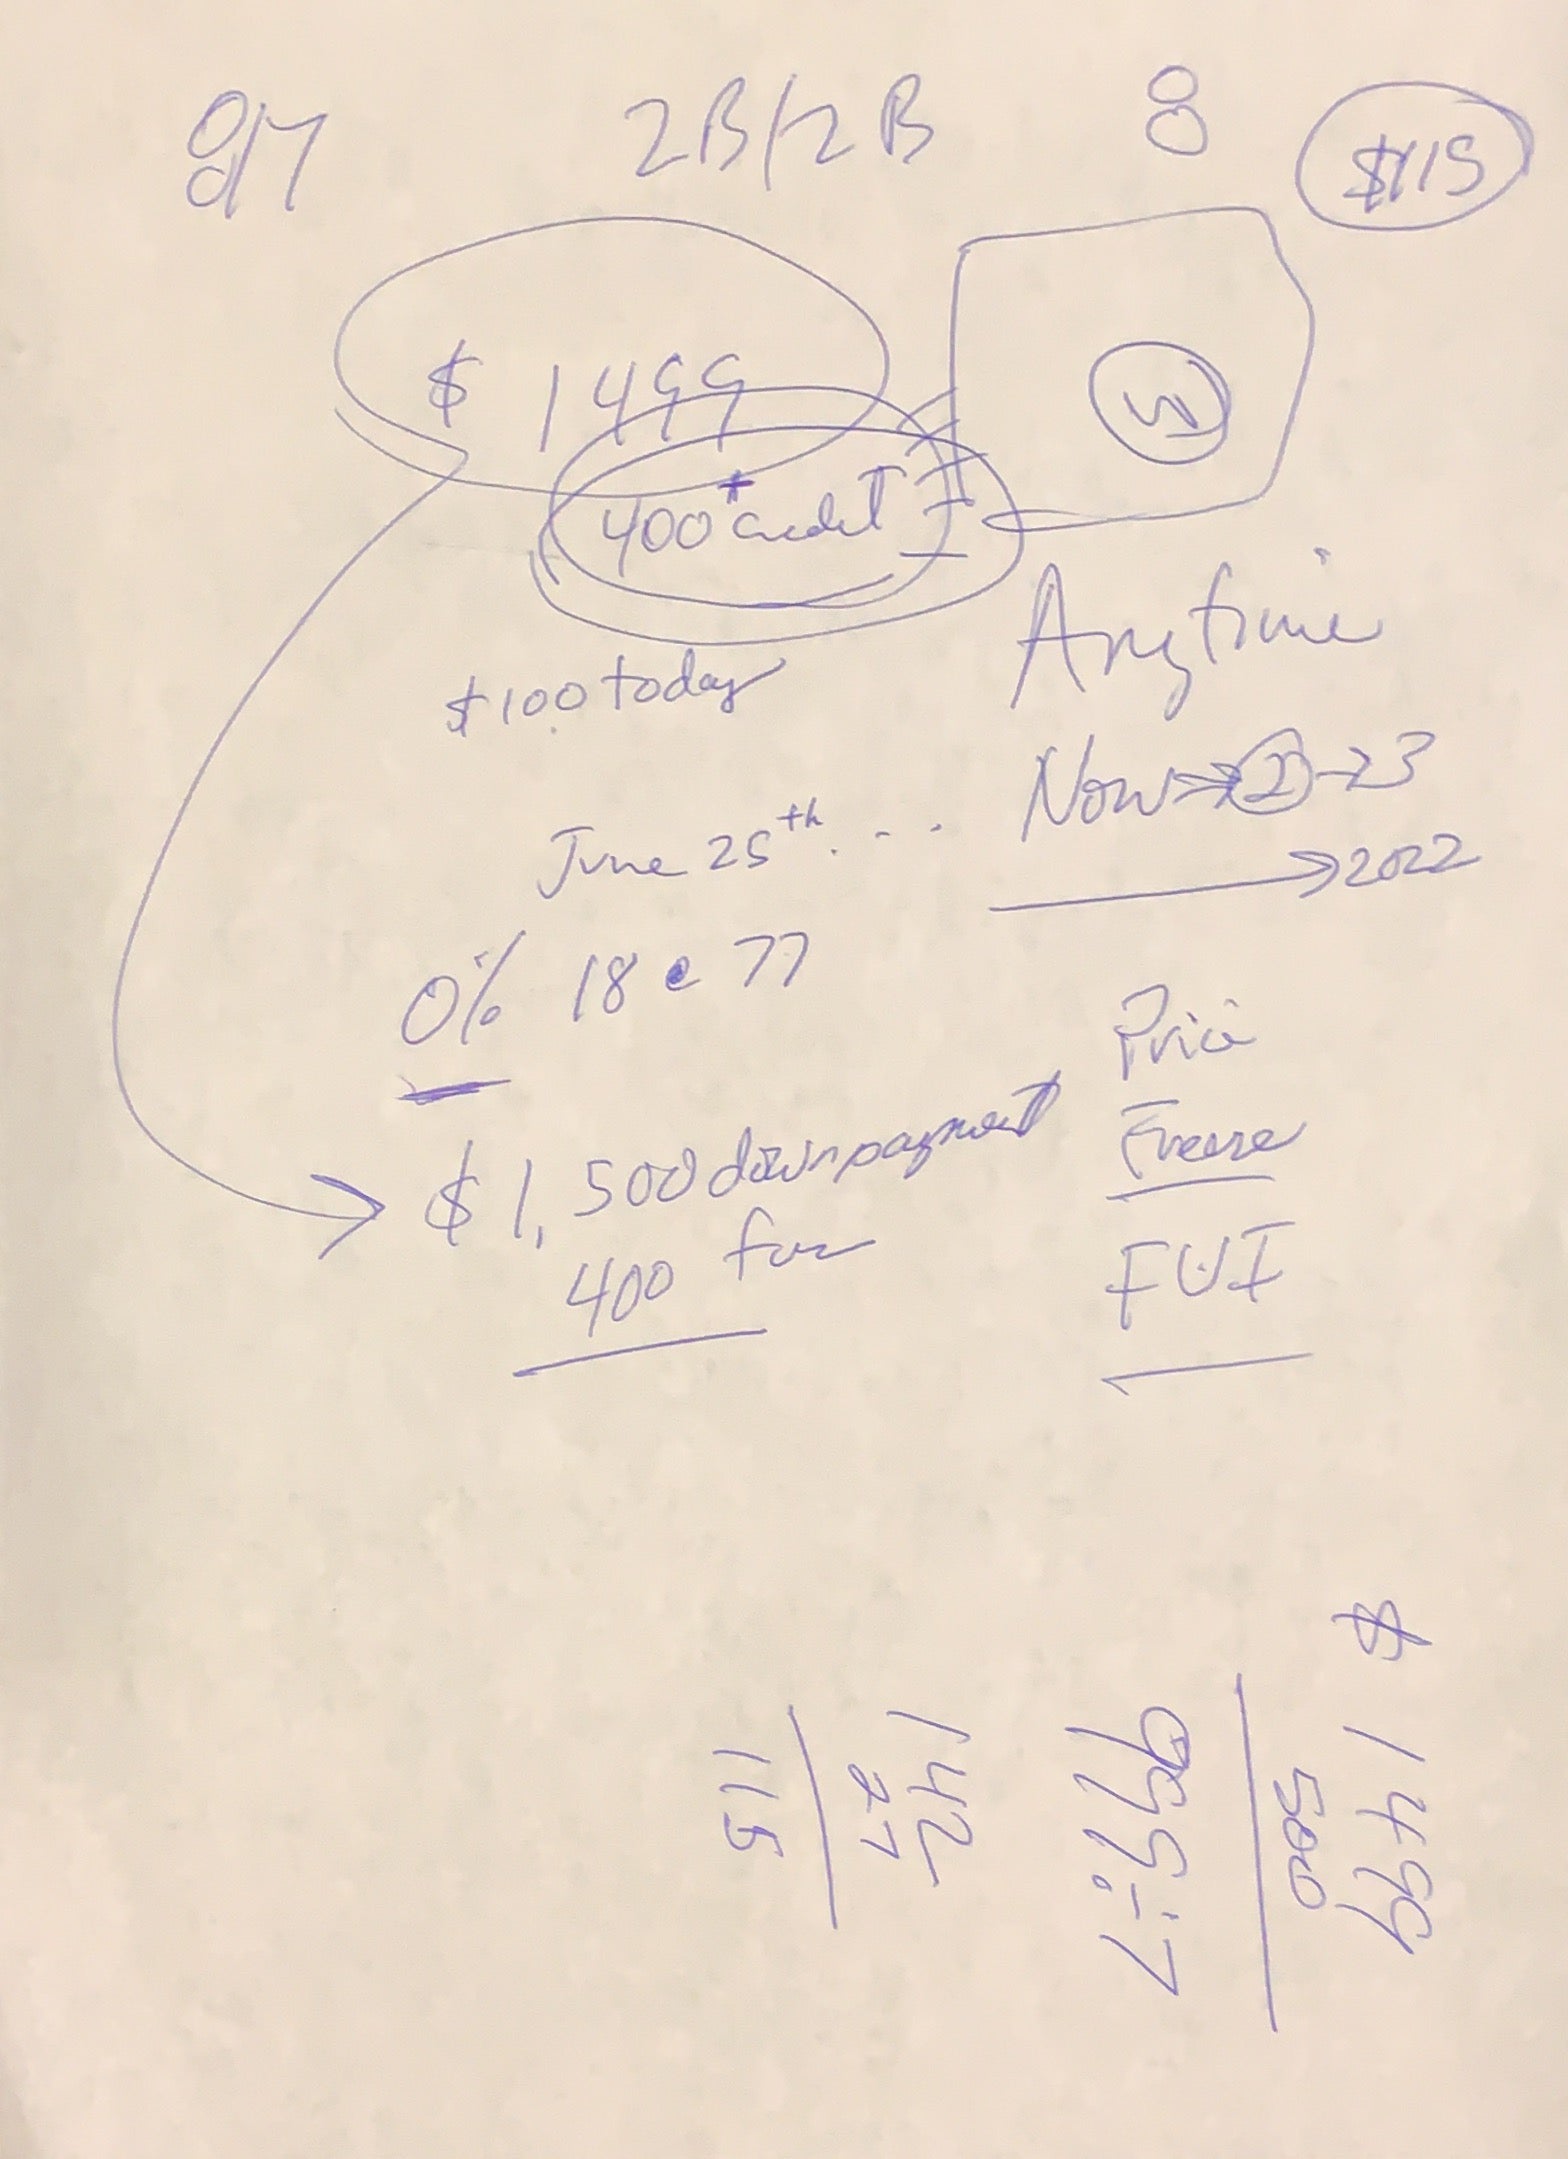 8/7 2B/2B 8 $115
$ 1499
+
400 credit
$100 today
Anytime
Now → 2 → 23
→ 2022
June 25th . . .
0% 18 @ 77
$1,500 down payment
400 for
Price
Freeze
FUI
$ 1499
500
999 ÷ 7
142
27
115